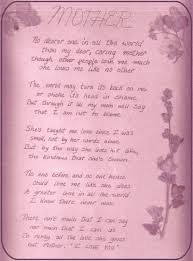 MOTHER
No dearer one in all the world
than my dear, caring mother
though other people love me much
she loves me like no other
The world may turn its back on me
or shake its head in shame.
But through it all my mum will say
that I am not to blame.
She's taught me love since I was
small, not by her words alone.
But by the way she lives her life,
the kindness that she's known.
No one before and no one since
Could love me like she does
A greater love in all the world
I know there never was.
There isn't much that I can say
as much that I can do
To repay all the love she gives
but Mother, "I love you"